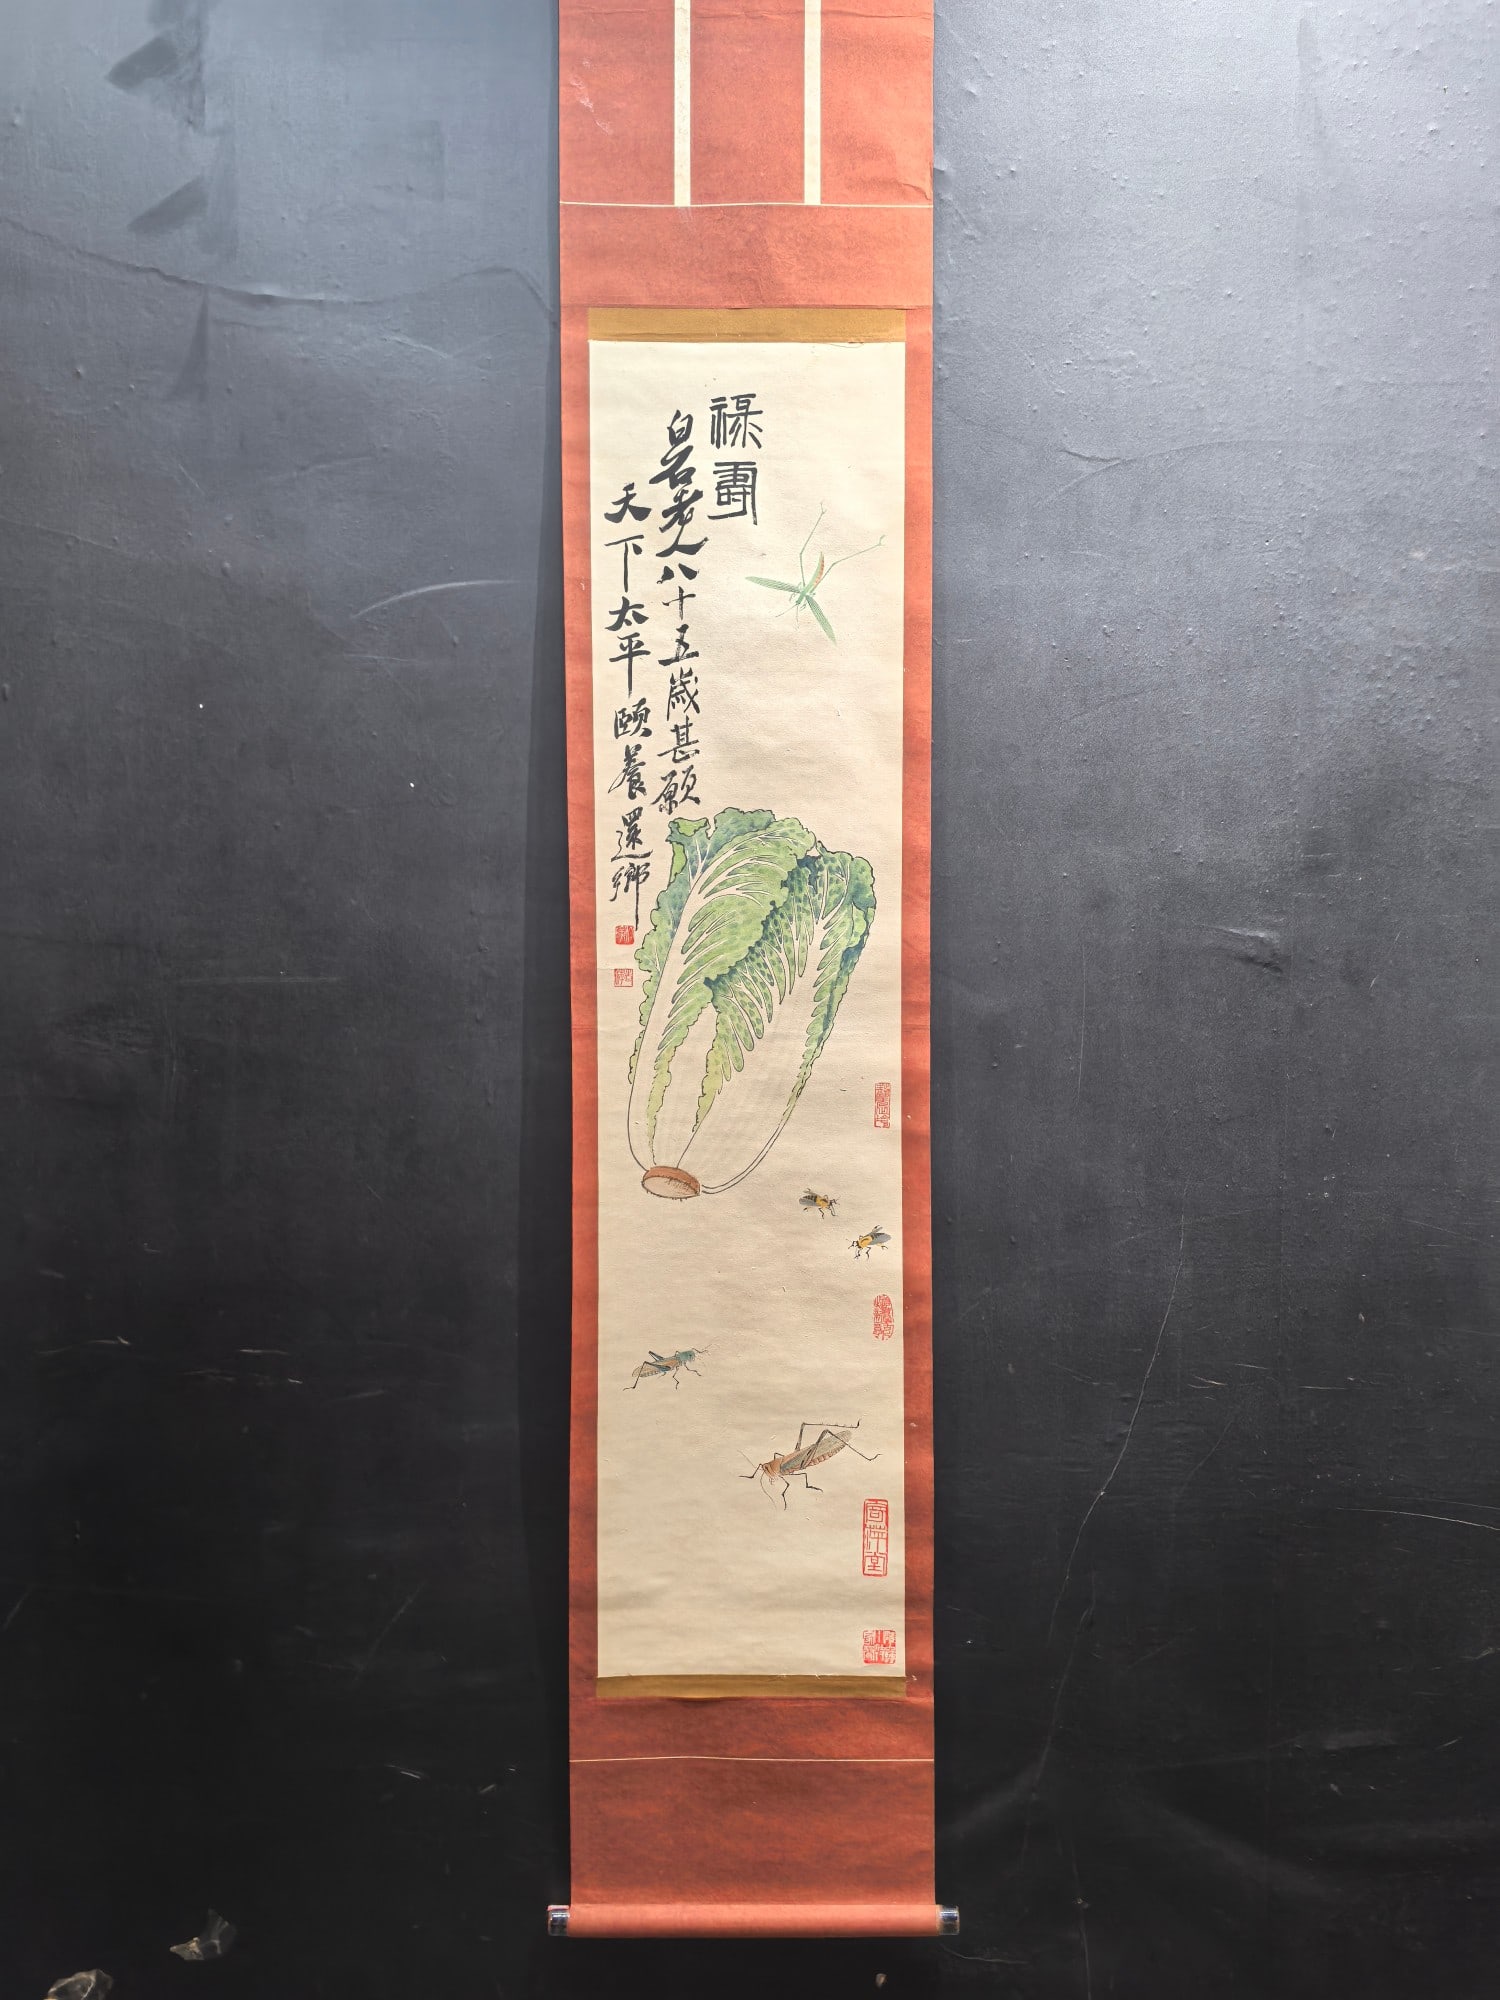 禄壽
白石老人八十五歲甚願
天下太平頤養還鄉
寄萍堂